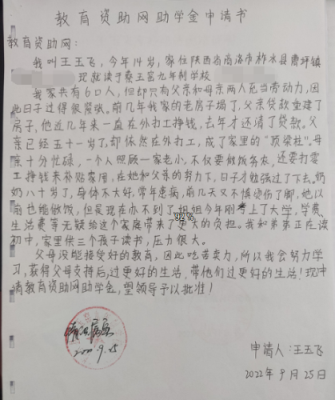 教育资助网助学金申请书
教育资助网：
我叫王五飞，今年14岁，家住陕西省商洛市柞水县曹坪镇
现就读于秦王宫九年制学校
我家共有6口人，但却只有父亲和母亲两人是劳动力，因
此日子过得很紧张。前几年我家的老房子塌了，父亲贷款重建了
房子，他近几年来一直在外打工挣钱，去年才还清了贷款。父
亲已经五十一岁了，却依然在外打工，成了家里的"顶梁柱"。母
亲十分忙碌，一个人照顾一家老小，不仅要做饭务农，还要打零
工挣钱来补贴家用，在她和父亲的努力下，日子才勉强过了下去。奶
奶八十岁了，身体不大好，常年患病，前几天又不慎烫伤了脚，她以
前也能做饭，但是现在办不到了。姐姐今年刚考上了大学，学费、
生活费等无疑给这个家庭带来了更大的负担。我和弟弟正在读
初中，家里供三个孩子读书，压力很大。
父母没能接受好的教育，因此吃苦卖力，所以我会努力学
习，获得父母支持后，过更好的生活，带他们过更好的生活！现申
请教育资助网助学金，望领导予以批准！
申请人：王五飞
2022年9月25日